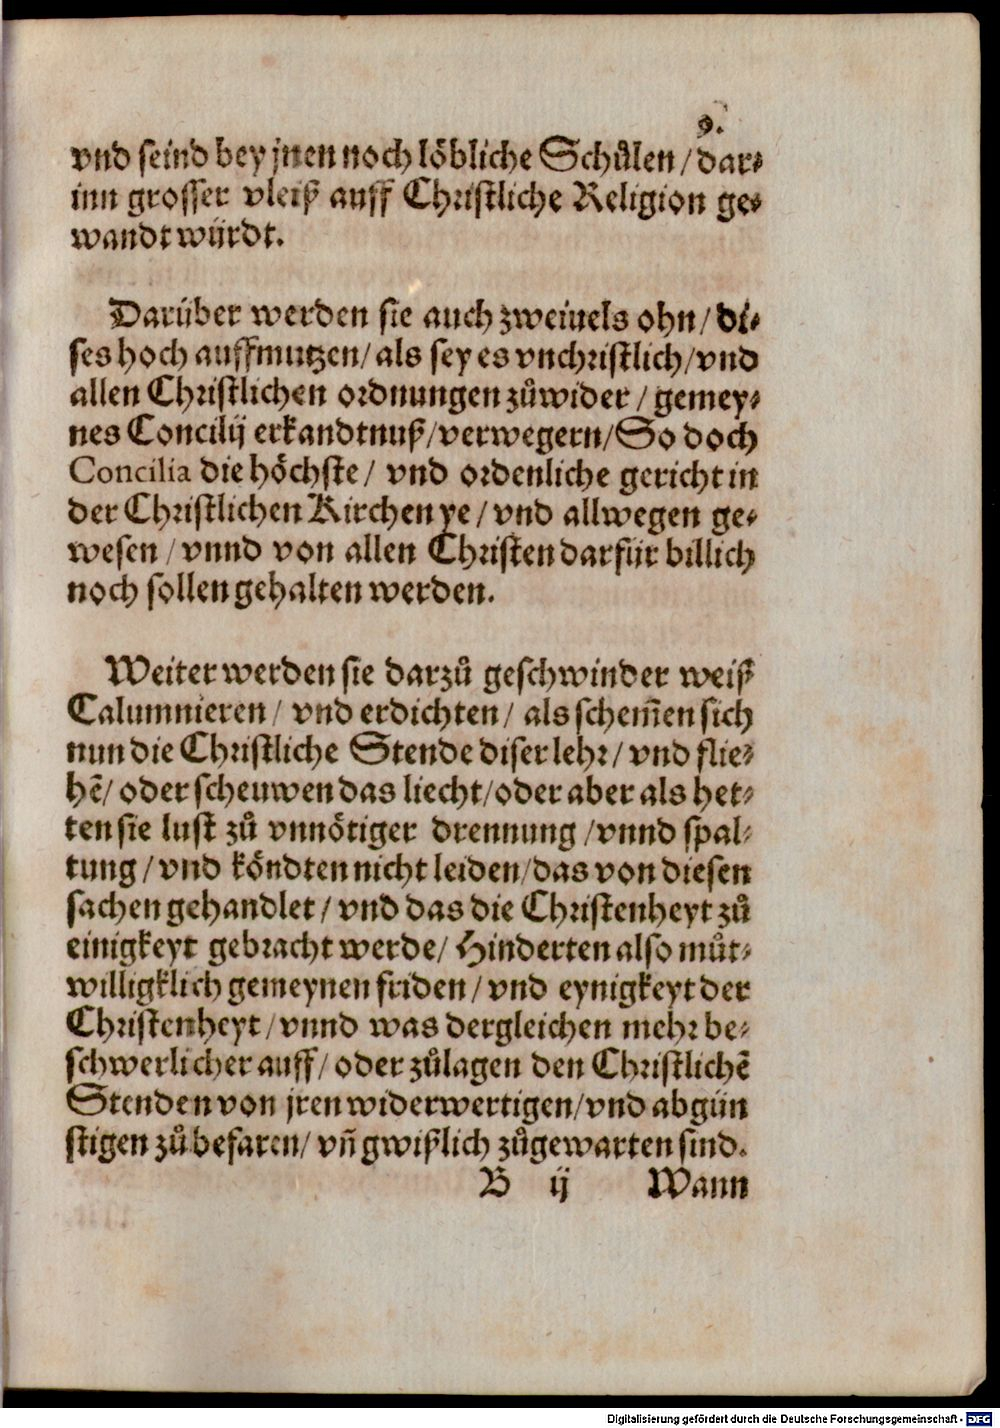 9.
vnd seind bey jnen noch löbliche Schůlen/dar⸗
inn grosser vleiß auff Christliche Religion ge⸗
wandt würdt.
Darüber werden sie auch zweiuels ohn/di⸗
ses hoch auffmutzen/als sey es vnchristlich/vnd
allen Christlichen ordnungen zůwider/gemey⸗
nes Concilij erkandtnuß/verwegern/So doch
Concilia die höchste/ vnd ordenliche gericht in
der Christlichen Kirchen ye/vnd allwegen ge⸗
wesen/vnnd von allen Christen darfür billich
noch sollen gehalten werden.
Weiter werden sie darzů geschwinder weiß
Calumnieren/ vnd erdichten/ als schem̃en sich
nun die Christliche Stende diser lehr/vnd flie⸗
hẽ/oder scheuwen das liecht/oder aber als het⸗
ten sie lust zů vnnötiger drennung/vnnd spal⸗
tung/vnd köndten nicht leiden/das von diesen
sachen gehandlet/vnd das die Christenheyt zů
einigkeyt gebracht werde/Hinderten also můt⸗
willigklich gemeynen friden/vnd eynigkeyt der
Christenheyt/vnnd was dergleichen mehr be⸗
schwerlicher auff/oder zůlagen den Christlichẽ
Stenden von jren widerwertigen/vnd abgün
stigen zů befaren/vñ gwißlich zůgewarten sind.
B ij Wann
Digitalisierung gefördert durch die Deutsche Forschungsgemeinschaft - DFG